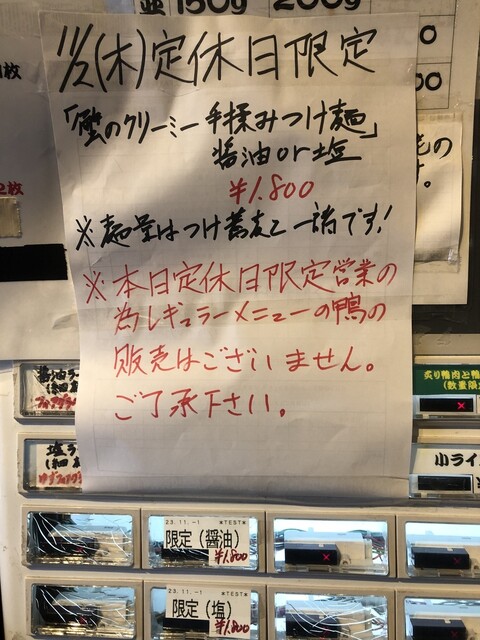 並 150g 200g
11/2(木)定休日限定
「蟹のクリーミー手揉みつけ麺」
醤油or塩
¥1.800
※麺量はつけ蕎麦と一緒です!
※本日定休日限定営業の
為レギュラーメニューの鴨の
販売はございません。
ご了承下さい。
炙り鴨肉と鴨
(数量限
小ライ
23.11.-1 *TEST*
限定(醤油)
¥1.800
23.11.-1 *TEST*
限定(塩)
¥1.800